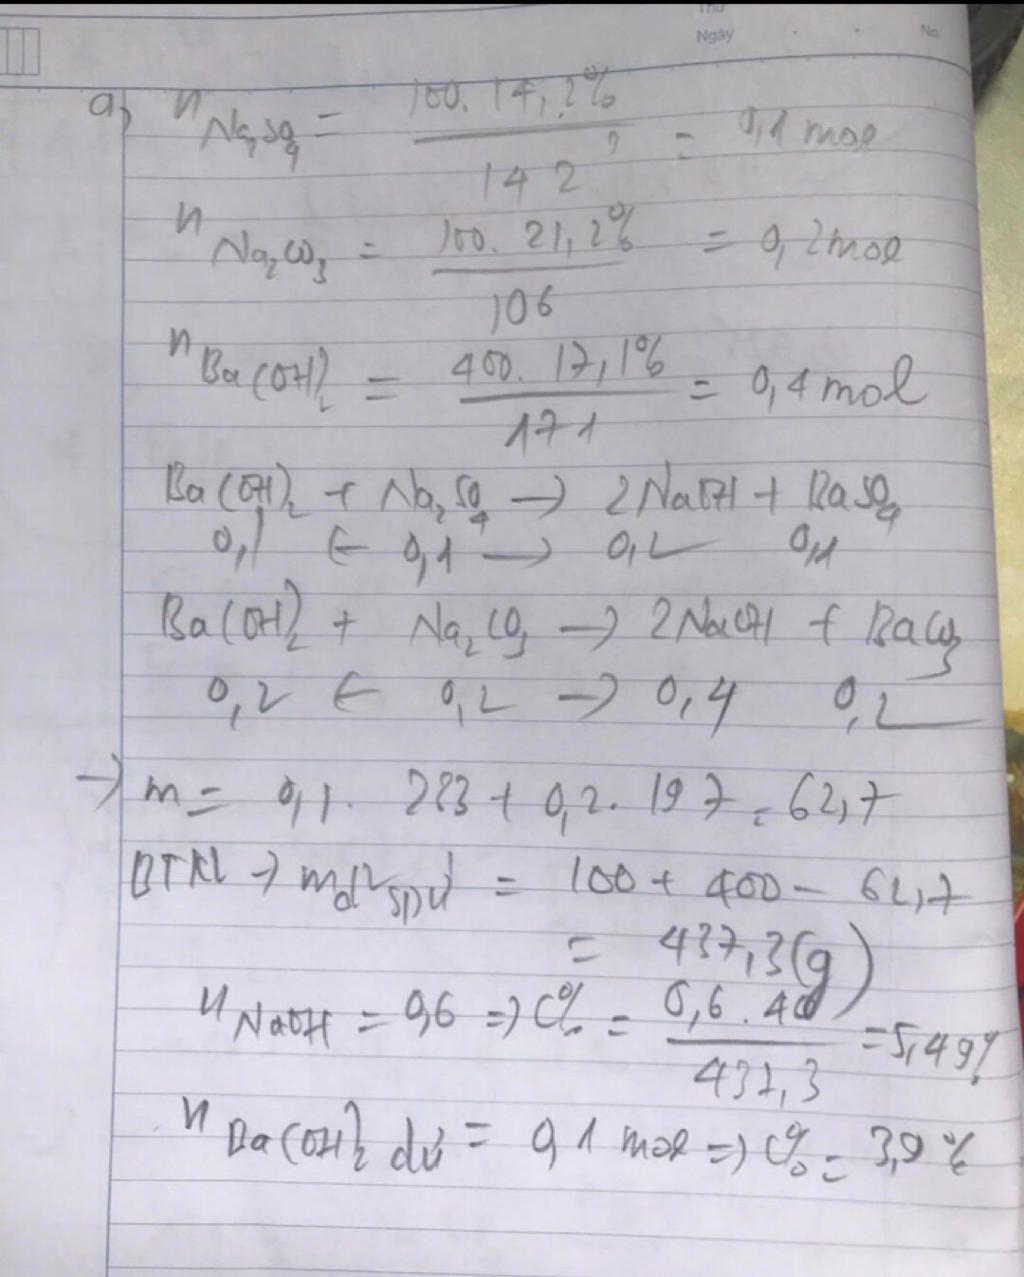 Thứ
Ngày . . No.
a) n Na₂SO₄ = 100. 14,2% / 142 = 0,1 mol
n Na₂CO₃ = 100. 21,2% / 106 = 0,2 mol
n Ba(OH)₂ = 400. 17,1% / 171 = 0,4 mol
Ba(OH)₂ + Na₂SO₄ → 2NaOH + BaSO₄
0,1 ← 0,1 → 0,2 0,1
Ba(OH)₂ + Na₂CO₃ → 2NaOH + BaCO₃
0,2 ← 0,2 → 0,4 0,2
→ m = 0,1. 233 + 0,2. 197 = 62,7
BTKL → mdd spứ = 100 + 400 - 62,7
= 437,3(g)
n NaOH = 0,6 => C% = 0,6 . 40 / 437,3 = 5,49%
n Ba(OH)₂ dư = 0,1 mol => C% = 3,9%